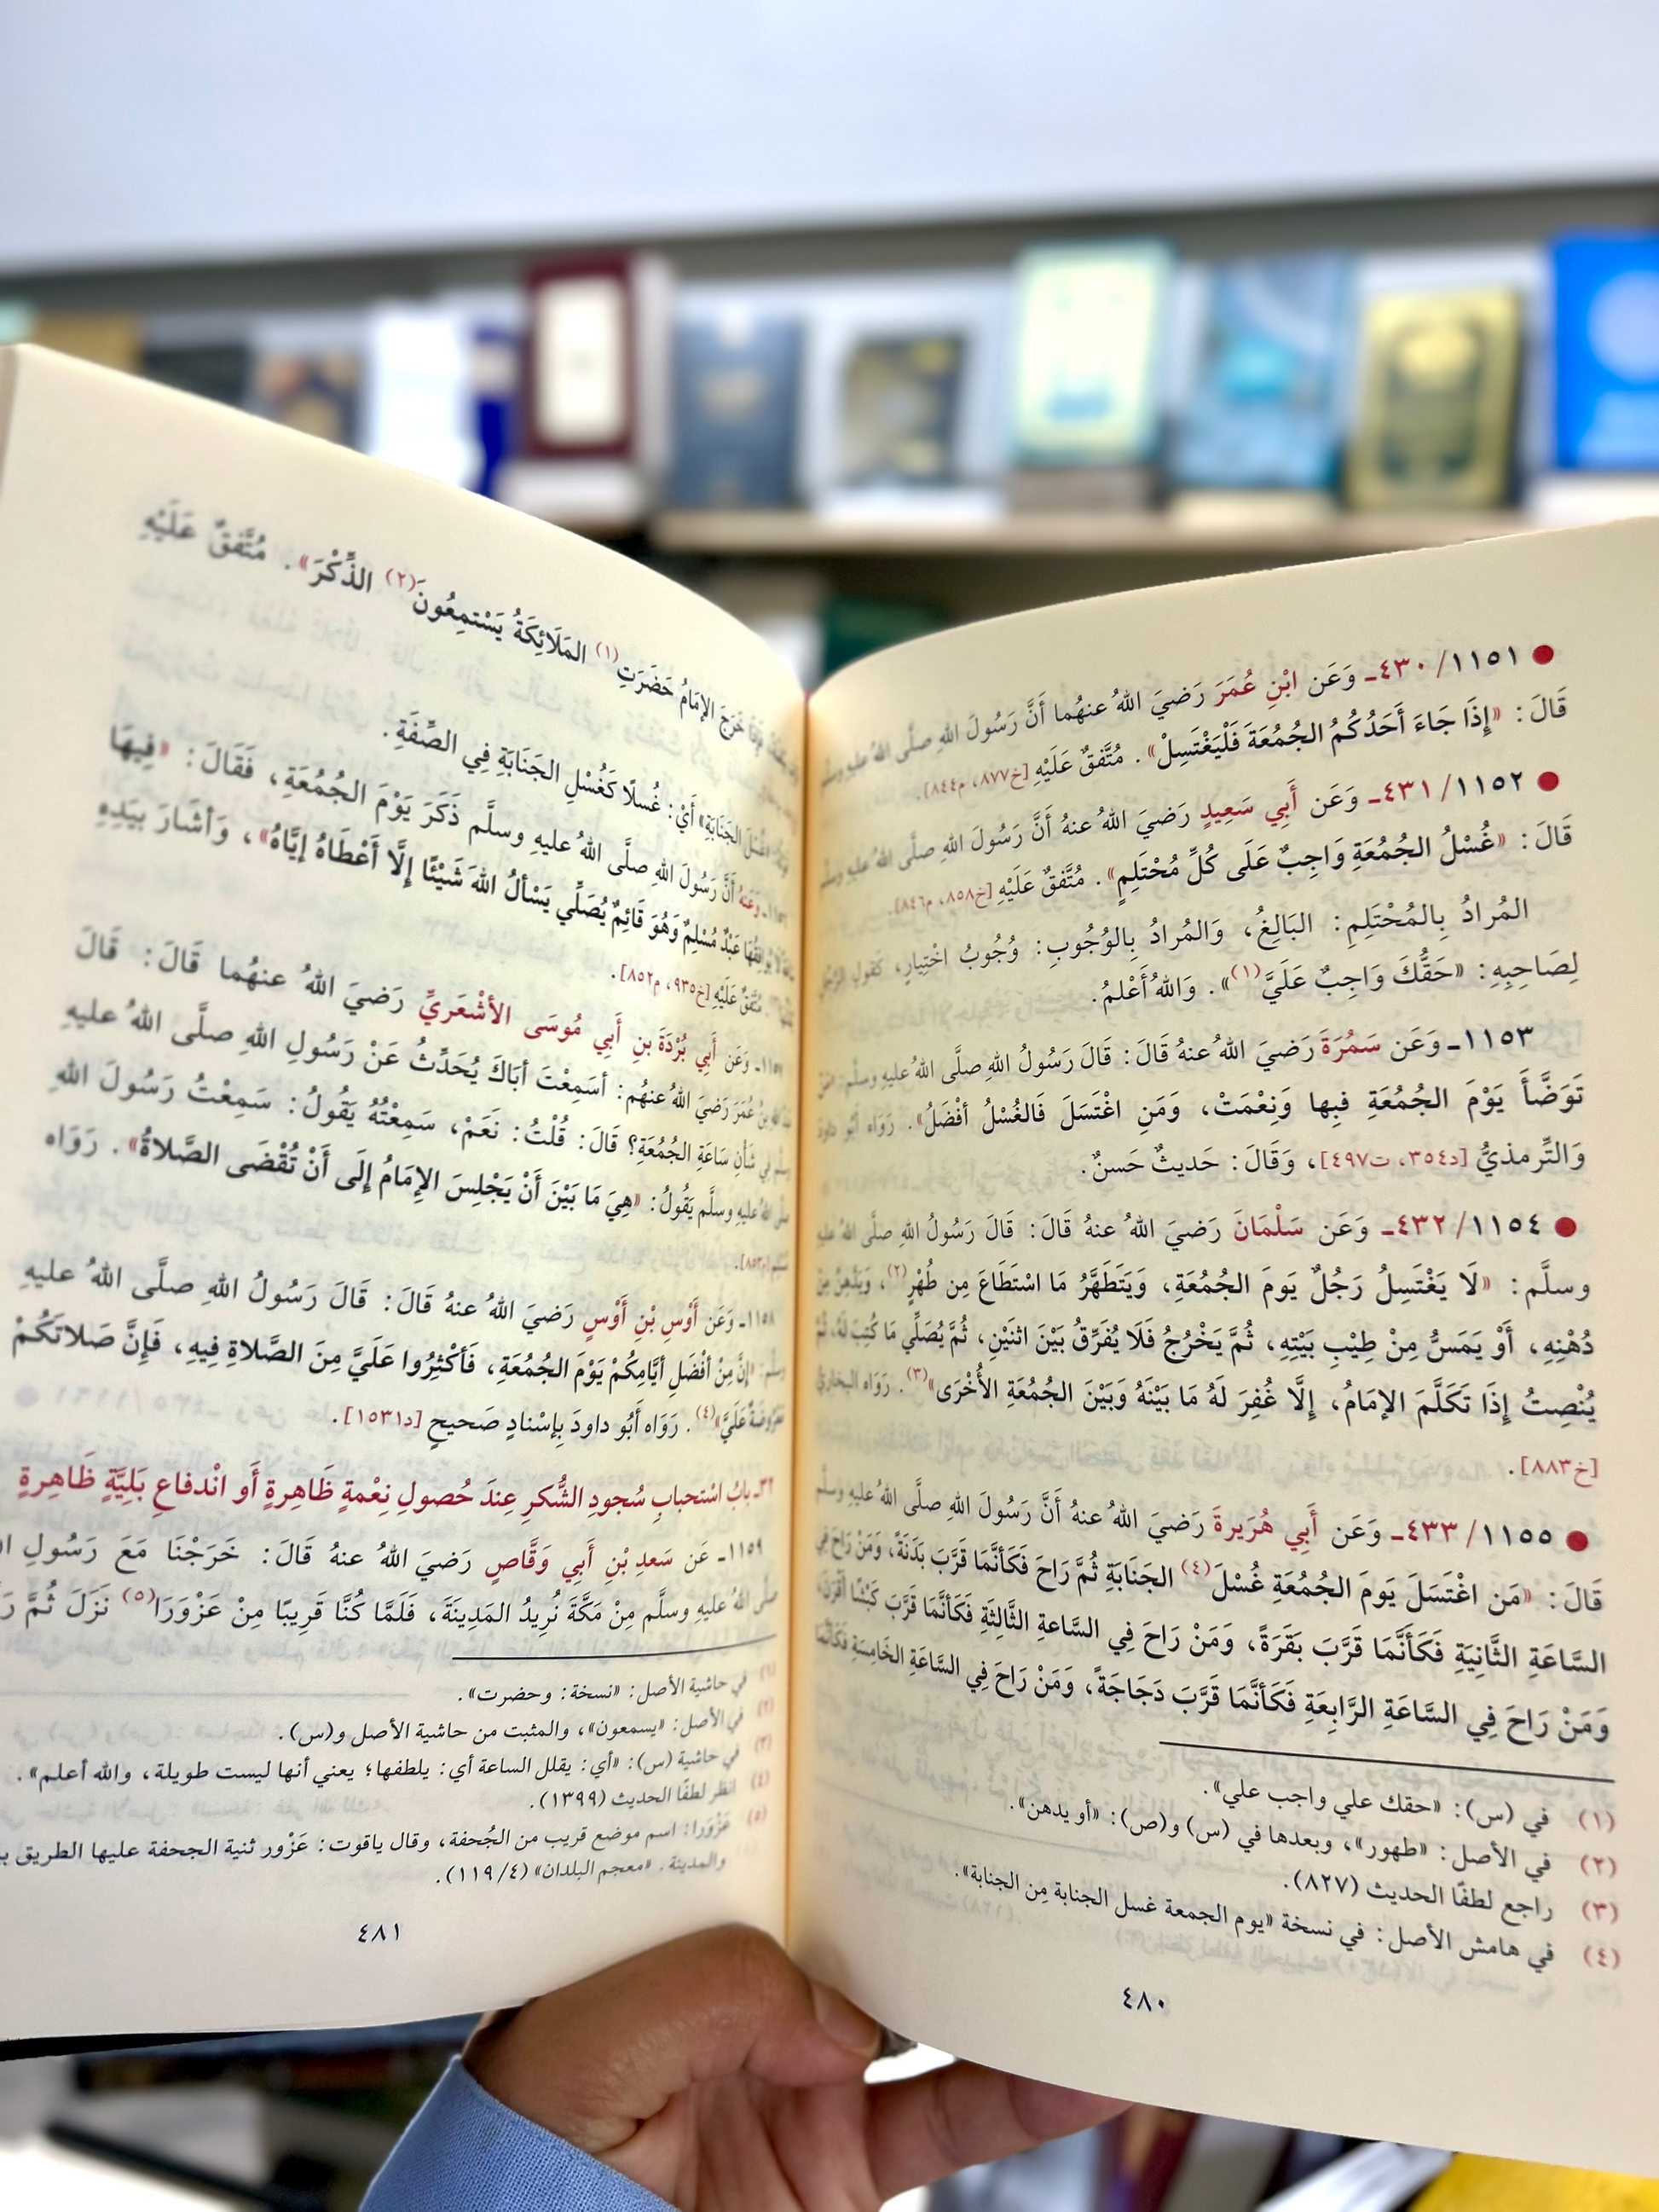 ● ١١٥١/ ٤٣٠ـ وَعَن ابْنِ عُمَرَ رَضيَ اللهُ عنهُما أَنَّ رَسُولَ اللهِ صلَّى اللهُ عليهِ وسلَّم
قَالَ: «إِذَا جَاءَ أَحَدُكُمُ الجُمُعَةَ فَلْيَغْتَسِلْ». مُتَّفقٌ عَلَيْهِ [خ٨٧٧، م٨٤٤].
● ١١٥٢/ ٤٣١ـ وَعَن أَبِي سَعِيدٍ رَضيَ اللهُ عنهُ أَنَّ رَسُولَ اللهِ صلَّى اللهُ عليهِ وسلَّم
قَالَ: «غُسْلُ الجُمُعَةِ وَاجِبٌ عَلَى كُلِّ مُحْتَلِمٍ». مُتَّفقٌ عَلَيْهِ [خ٨٥٨، م٨٤٦].
المُرادُ بِالمُحْتَلِمِ: البَالِغُ، وَالمُرادُ بِالوُجُوبِ: وُجُوبُ اخْتِيارٍ، كَقولِ الرَّجُلِ
لِصَاحِبِهِ: «حَقُّكَ وَاجِبٌ عَلَيَّ(١)». وَاللهُ أَعْلمُ.
١١٥٣ـ وَعَن سَمُرَةَ رَضيَ اللهُ عنهُ قَالَ: قَالَ رَسُولُ اللهِ صلَّى اللهُ عليهِ وسلَّم:
تَوَضَّأَ يَوْمَ الجُمُعَةِ فبِها وَنِعْمَتْ، وَمَنِ اغْتَسَلَ فَالغُسْلُ أفْضَلُ». رَوَاه أَبُو داود
وَالتِّرمذيُّ [د٣٥٤، ت٤٩٧]، وَقَالَ: حَديثٌ حَسنٌ.
● ١١٥٤/ ٤٣٢ـ وَعَن سَلْمَانَ رَضيَ اللهُ عنهُ قَالَ: قَالَ رَسُولُ اللهِ صلَّى اللهُ عليهِ
وسلَّم: «لَا يَغْتَسِلُ رَجُلٌ يَومَ الجُمُعَةِ، وَيَتَطَهَّرُ مَا اسْتَطَاعَ مِن طُهْرٍ(٢)، وَيَدَّهِنُ مِنْ
دُهْنِهِ، أَوْ يَمَسُّ مِنْ طِيْبِ بَيْتِهِ، ثُمَّ يَخْرُجُ فَلَا يُفَرِّقُ بَيْنَ اثنَيْنِ، ثُمَّ يُصَلِّي مَا كُتِبَ لَهُ، ثُمَّ
يُنْصِتُ إِذَا تَكَلَّمَ الإِمَامُ، إِلَّا غُفِرَ لَهُ مَا بَيْنَهُ وَبَيْنَ الجُمُعَةِ الأُخْرَى»(٣). رَوَاه البخاريُّ
[خ٨٨٣].
● ١١٥٥/ ٤٣٣ـ وَعَن أَبِي هُرَيرةَ رَضيَ اللهُ عنهُ أَنَّ رَسُولَ اللهِ صلَّى اللهُ عليهِ وسلَّم
قَالَ: «مَن اغْتَسَلَ يَومَ الجُمُعَةِ غُسْلَ(٤) الجَنَابَةِ ثُمَّ رَاحَ فَكَأنَّمَا قَرَّبَ بَدَنَةً، وَمَنْ رَاحَ فِي
السَّاعَةِ الثَّانِيَةِ فَكَأَنَّمَا قَرَّبَ بَقَرَةً، وَمَنْ رَاحَ فِي السَّاعَةِ الثَّالِثَةِ فَكَأنَّمَا قَرَّبَ كَبْشًا أقْرَنَ،
وَمَنْ رَاحَ فِي السَّاعَةِ الرَّابِعَةِ فَكَأنَّمَا قَرَّبَ دَجَاجَةً، وَمَنْ رَاحَ فِي السَّاعَةِ الخَامِسَةِ فَكَأنَّمَا
(١) في (س): «حقك علي واجب علي».
(٢) في الأصل: «طهور»، وبعدها في (س) و(ص): «أو يدهن».
(٣) راجع لطفًا الحديث (٨٢٧).
(٤) في هامش الأصل: في نسخة «يوم الجمعة غسل الجنابة مِن الجنابة».
٤٨٠
خَرَجَ الإِمَامُ حَضَرَتِ(١) المَلَائِكَةُ يَسْتمِعُونَ(٢) الذِّكْرَ». مُتَّفقٌ عَلَيْهِ
الجَنَابَةِ» أَيْ: غُسلًا كَغُسْلِ الجَنَابَةِ فِي الصِّفَةِ.
وَعَنهُ أَنَّ رَسُولَ اللهِ صلَّى اللهُ عليهِ وسلَّم ذَكَرَ يَوْمَ الجُمُعَةِ، فَقَالَ: «فِيهَا
عَبْدٌ مُسْلِمٌ وَهُوَ قَائِمٌ يُصَلِّي يَسْألُ اللهَ شَيْئًا إِلَّا أَعْطَاهُ إِيَّاهُ»، وَأشَارَ بيَدِهِ
مُتَّفقٌ عَلَيْهِ [خ٩٣٥، م٨٥٢].
وَعَن أَبِي بُرْدَةَ بنِ أَبِي مُوسَى الأشْعَريِّ رَضيَ اللهُ عنهُما قَالَ: قَالَ
بنُ عُمَرَ رَضيَ اللهُ عنهُم: أسَمِعْتَ أبَاكَ يُحَدِّثُ عَنْ رَسُولِ اللهِ صلَّى اللهُ عليهِ
فِي شَأْنِ سَاعَةِ الجُمُعَةِ؟ قَالَ: قُلْتُ: نَعَمْ، سَمِعْتُهُ يَقُولُ: سَمِعْتُ رَسُولَ اللهِ
صلَّى اللهُ عليهِ وسلَّم يَقُولُ: «هِيَ مَا بَيْنَ أَنْ يَجْلِسَ الإِمَامُ إِلَى أَنْ تُقْضَى الصَّلاةُ». رَوَاه
[م٨٥٣].
١١٥٨ـ وَعَن أَوْسِ بْنِ أَوْسٍ رَضيَ اللهُ عنهُ قَالَ: قَالَ رَسُولُ اللهِ صلَّى اللهُ عليهِ
وسلَّم: «إِنَّ مِنْ أفْضَلِ أيَّامِكُمْ يَوْمَ الجُمُعَةِ، فَأكْثِرُوا عَلَيَّ مِنَ الصَّلاةِ فِيهِ، فَإِنَّ صَلاتَكُمْ
مَعْرُوضَةٌ عَلَيَّ»(٤). رَوَاه أَبُو داودَ بِإسْنادٍ صَحيحٍ [د١٥٣١].
بابُ اسْتحبابِ سُجودِ الشُّكرِ عِندَ حُصولِ نِعْمةٍ ظَاهِرةٍ أَو انْدفاعِ بَليَّةٍ ظَاهِرةٍ
١١٥٩ـ عَن سَعدِ بْنِ أَبِي وَقَّاصٍ رَضيَ اللهُ عنهُ قَالَ: خَرَجْنَا مَعَ رَسُولِ
صلَّى اللهُ عليهِ وسلَّم مِنْ مَكَّةَ نُرِيدُ المَدِينَةَ، فَلَمَّا كُنَّا قَرِيبًا مِنْ عَزْوَرَا(٥) نَزَلَ ثُمَّ
(١) في حاشية الأصل: «نسخة: وحضرت».
(٢) في الأصل: «يسمعون»، والمثبت من حاشية الأصل و(س).
(٣) في حاشية (س): «أي: يقلل الساعة أي: يلطفها؛ يعني أنها ليست طويلة، والله أعلم».
(٤) انظر لطفًا الحديث (١٣٩٩).
(٥) عَزْورا: اسم موضع قريب من الجُحفة، وقال ياقوت: عَزْور ثنية الجحفة عليها الطريق
والمدينة. «معجم البلدان» (٤/ ١١٩).
٤٨١